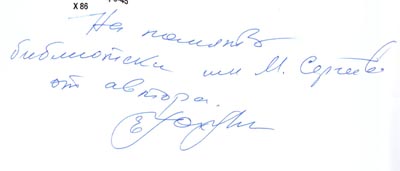 Х 86
На память
библиотеки им М. Сергеева
от автора.